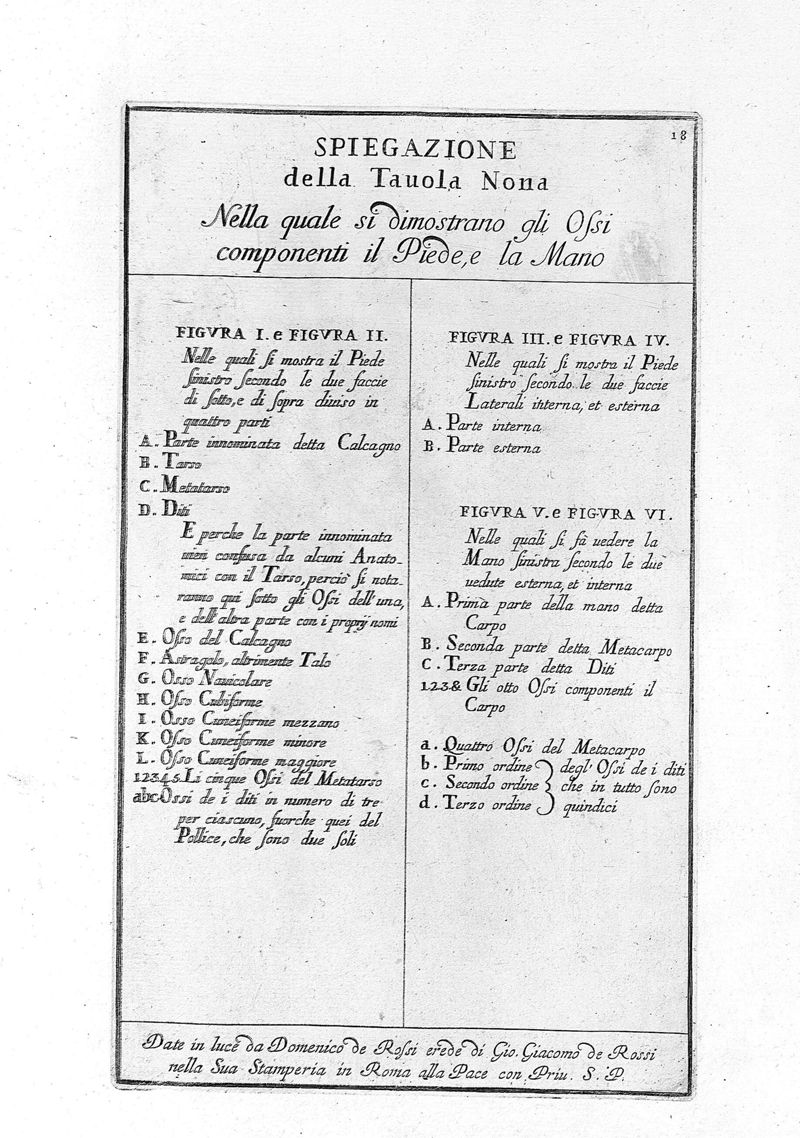 18
SPIEGAZIONE
della Tauola Nona
Nella quale si dimostrano gli Oſsi
componenti il Piede, e la Mano
FIGVRA I. e FIGVRA II.
Nelle quali ſi mostra il Piede
ſinistro ſecondo le due faccie
di ſotto, e di ſopra diuiso in
quattro parti
A. Parte innominata detta Calcagno
B. Tarso
C. Metatarso
D. Diti
E perche la parte innominata
vien confusa da alcuni Anato-
mici con il Tarso, perciò ſi nota-
ranno qui ſotto gli Oſsi dell'una,
e dell'altra parte con i proprij nomi
E. Oſso del Calcagno
F. Astragolo, altrimente Talo
G. Osso Nauicolare
H. Oſso Cubiforme
I. Osso Cuneiforme mezzano
K. Oſso Cuneiforme minore
L. Oſso Cuneiforme maggiore
1.2.3.4.5. Li cinque Oſsi del Metatarso
abc. Ossi de i diti in numero di tre
per ciascuno, fuorche quei del
Pollice, che ſono due ſoli
FIGVRA III. e FIGVRA IV.
Nelle quali ſi mostra il Piede
ſinistro ſecondo le due faccie
Laterali interna, et esterna
A. Parte interna
B. Parte esterna
FIGVRA V. e FIGVRA VI.
Nelle quali ſi fà uedere la
Mano ſinistra ſecondo le due
uedute esterna, et interna
A. Prima parte della mano detta
Carpo
B. Seconda parte detta Metacarpo
C. Terza parte detta Diti
1.2.3.& Gli otto Oſsi componenti il
Carpo
a. Quattro Oſsi del Metacarpo
b. Primo ordine } degl' Oſsi de i diti
c. Secondo ordine } che in tutto ſono
d. Terzo ordine } quindici
Date in luce da Domenico de Roſsi erede di Gio. Giacomo de Rossi
nella Sua Stamperia in Roma alla Pace con Priu. S. P.